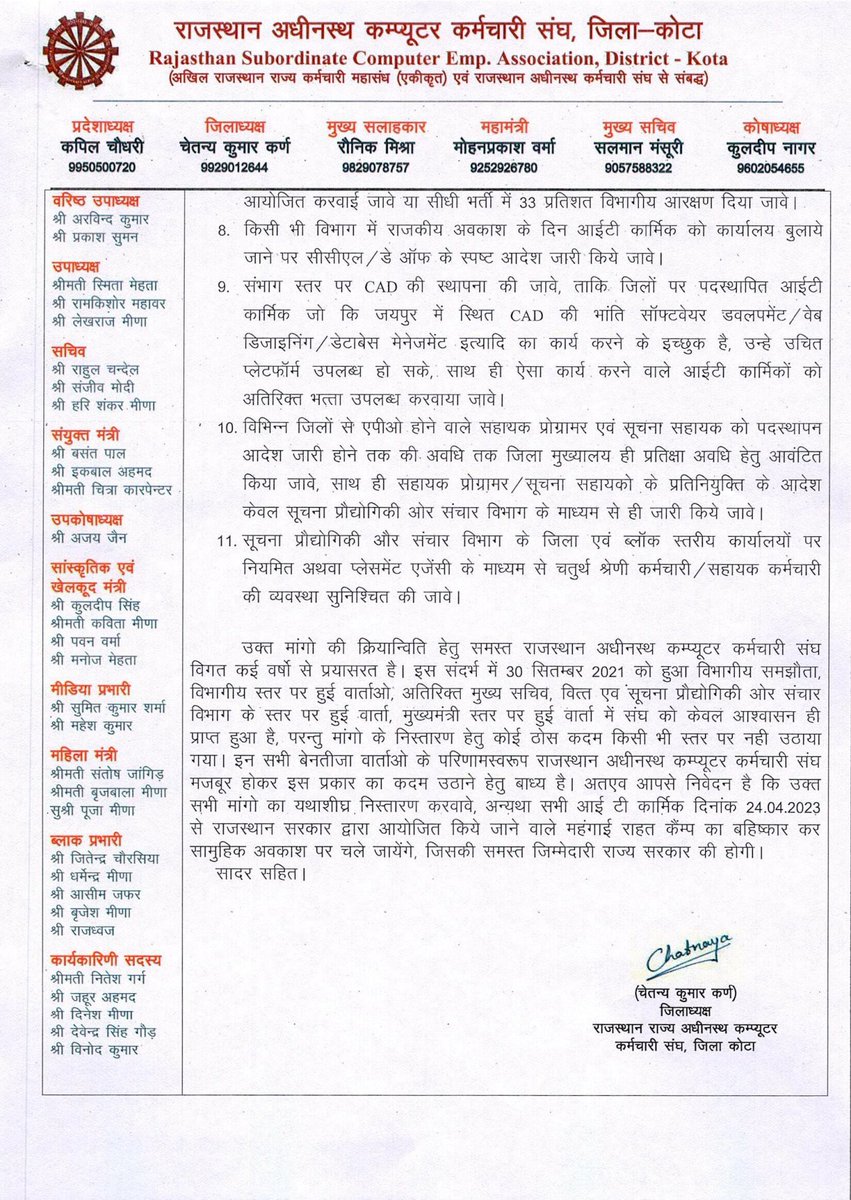 राजस्थान अधीनस्थ कम्प्यूटर कर्मचारी संघ, जिला–कोटा
Rajasthan Subordinate Computer Emp. Association, District - Kota
(अखिल राजस्थान राज्य कर्मचारी महासंघ (एकीकृत) एवं राजस्थान अधीनस्थ कर्मचारी संघ से संबद्ध)
प्रदेशाध्यक्ष
कपिल चौधरी
9950500720
जिलाध्यक्ष
चेतन्य कुमार कर्ण
9929012644
मुख्य सलाहकार
रौनिक मिश्रा
9829078757
महामंत्री
मोहनप्रकाश वर्मा
9252926780
मुख्य सचिव
सलमान मंसूरी
9057588322
कोषाध्यक्ष
कुलदीप नागर
9602054655
वरिष्ठ उपाध्यक्ष
श्री अरविन्द कुमार
श्री प्रकाश सुमन
उपाध्यक्ष
श्रीमती स्मिता मेहता
श्री रामकिशोर महावर
श्री लेखराज मीणा
सचिव
श्री राहुल चन्देल
श्री संजीव मोदी
श्री हरि शंकर मीणा
संयुक्त मंत्री
श्री बसंत पाल
श्री इकबाल अहमद
श्रीमती चित्रा कारपेन्टर
उपकोषाध्यक्ष
श्री अजय जैन
सांस्कृतिक एवं
खेलकूद मंत्री
श्री कुलदीप सिंह
श्रीमती कविता मीणा
श्री पवन वर्मा
श्री मनोज मेहता
मीडिया प्रभारी
श्री सुमित कुमार शर्मा
श्री महेश कुमार
महिला मंत्री
श्रीमती संतोष जांगिड़
श्रीमती बृजबाला मीणा
सुश्री पूजा मीणा
ब्लाक प्रभारी
श्री जितेन्द्र चौरसिया
श्री धर्मेन्द्र मीणा
श्री आसीम जफर
श्री बृजेश मीणा
श्री राजध्वज
कार्यकारिणी सदस्य
श्रीमती नितेश गर्ग
श्री जहूर अहमद
श्री दिनेश मीणा
श्री देवेन्द्र सिंह गौड़
श्री विनोद कुमार
आयोजित करवाई जावे या सीधी भर्ती में 33 प्रतिशत विभागीय आरक्षण दिया जावे।
8. किसी भी विभाग में राजकीय अवकाश के दिन आईटी कार्मिक को कार्यालय बुलाये
जाने पर सीसीएल/डे ऑफ के स्पष्ट आदेश जारी किये जावे।
9. संभाग स्तर पर CAD की स्थापना की जावे, ताकि जिलों पर पदस्थापित आईटी
कार्मिक जो कि जयपुर में स्थित CAD की भांति सॉफ्टवेयर डवलपमेंट/वेब
डिजाइनिंग/डेटाबेस मेनेजमेंट इत्यादि का कार्य करने के इच्छुक है, उन्हे उचित
प्लेटफॉर्म उपलब्ध हो सके, साथ ही ऐसा कार्य करने वाले आईटी कार्मिकों को
अतिरिक्त भत्ता उपलब्ध करवाया जावे।
10. विभिन्न जिलों से एपीओ होने वाले सहायक प्रोग्रामर एवं सूचना सहायक को पदस्थापन
आदेश जारी होने तक की अवधि तक जिला मुख्यालय ही प्रतिक्षा अवधि हेतु आवंटित
किया जावे, साथ ही सहायक प्रोग्रामर/सूचना सहायको के प्रतिनियुक्ति के आदेश
केवल सूचना प्रौद्योगिकी ओर संचार विभाग के माध्यम से ही जारी किये जावे।
11. सूचना प्रौद्योगिकी और संचार विभाग के जिला एवं ब्लॉक स्तरीय कार्यालयों पर
नियमित अथवा प्लेसमेंट एजेंसी के माध्यम से चतुर्थ श्रेणी कर्मचारी/सहायक कर्मचारी
की व्यवस्था सुनिश्चित की जावे।
उक्त मांगो की क्रियान्विति हेतु समस्त राजस्थान अधीनस्थ कम्प्यूटर कर्मचारी संघ
विगत कई वर्षो से प्रयासरत है। इस संदर्भ में 30 सितम्बर 2021 को हुआ विभागीय समझौता,
विभागीय स्तर पर हुई वार्ताओ, अतिरिक्त मुख्य सचिव, वित्त एव सूचना प्रौद्योगिकी ओर संचार
विभाग के स्तर पर हुई वार्ता, मुख्यमंत्री स्तर पर हुई वार्ता में संघ को केवल आश्वासन ही
प्राप्त हुआ है, परन्तु मांगो के निस्तारण हेतु कोई ठोस कदम किसी भी स्तर पर नही उठाया
गया। इन सभी बेनतीजा वार्ताओ के परिणामस्वरूप राजस्थान अधीनस्थ कम्प्यूटर कर्मचारी संघ
मजबूर होकर इस प्रकार का कदम उठाने हेतु बाध्य है। अतएव आपसे निवेदन है कि उक्त
सभी मांगो का यथाशीघ्र निस्तारण करवावे, अन्यथा सभी आई टी कार्मिक दिनांक 24.04.2023
से राजस्थान सरकार द्वारा आयोजित किये जाने वाले महंगाई राहत कैंम्प का बहिष्कार कर
सामुहिक अवकाश पर चले जायेंगे, जिसकी समस्त जिम्मेदारी राज्य सरकार की होगी।
सादर सहित।
Chatnaya
(चेतन्य कुमार कर्ण)
जिलाध्यक्ष
राजस्थान राज्य अधीनस्थ कम्प्यूटर
कर्मचारी संघ, जिला कोटा